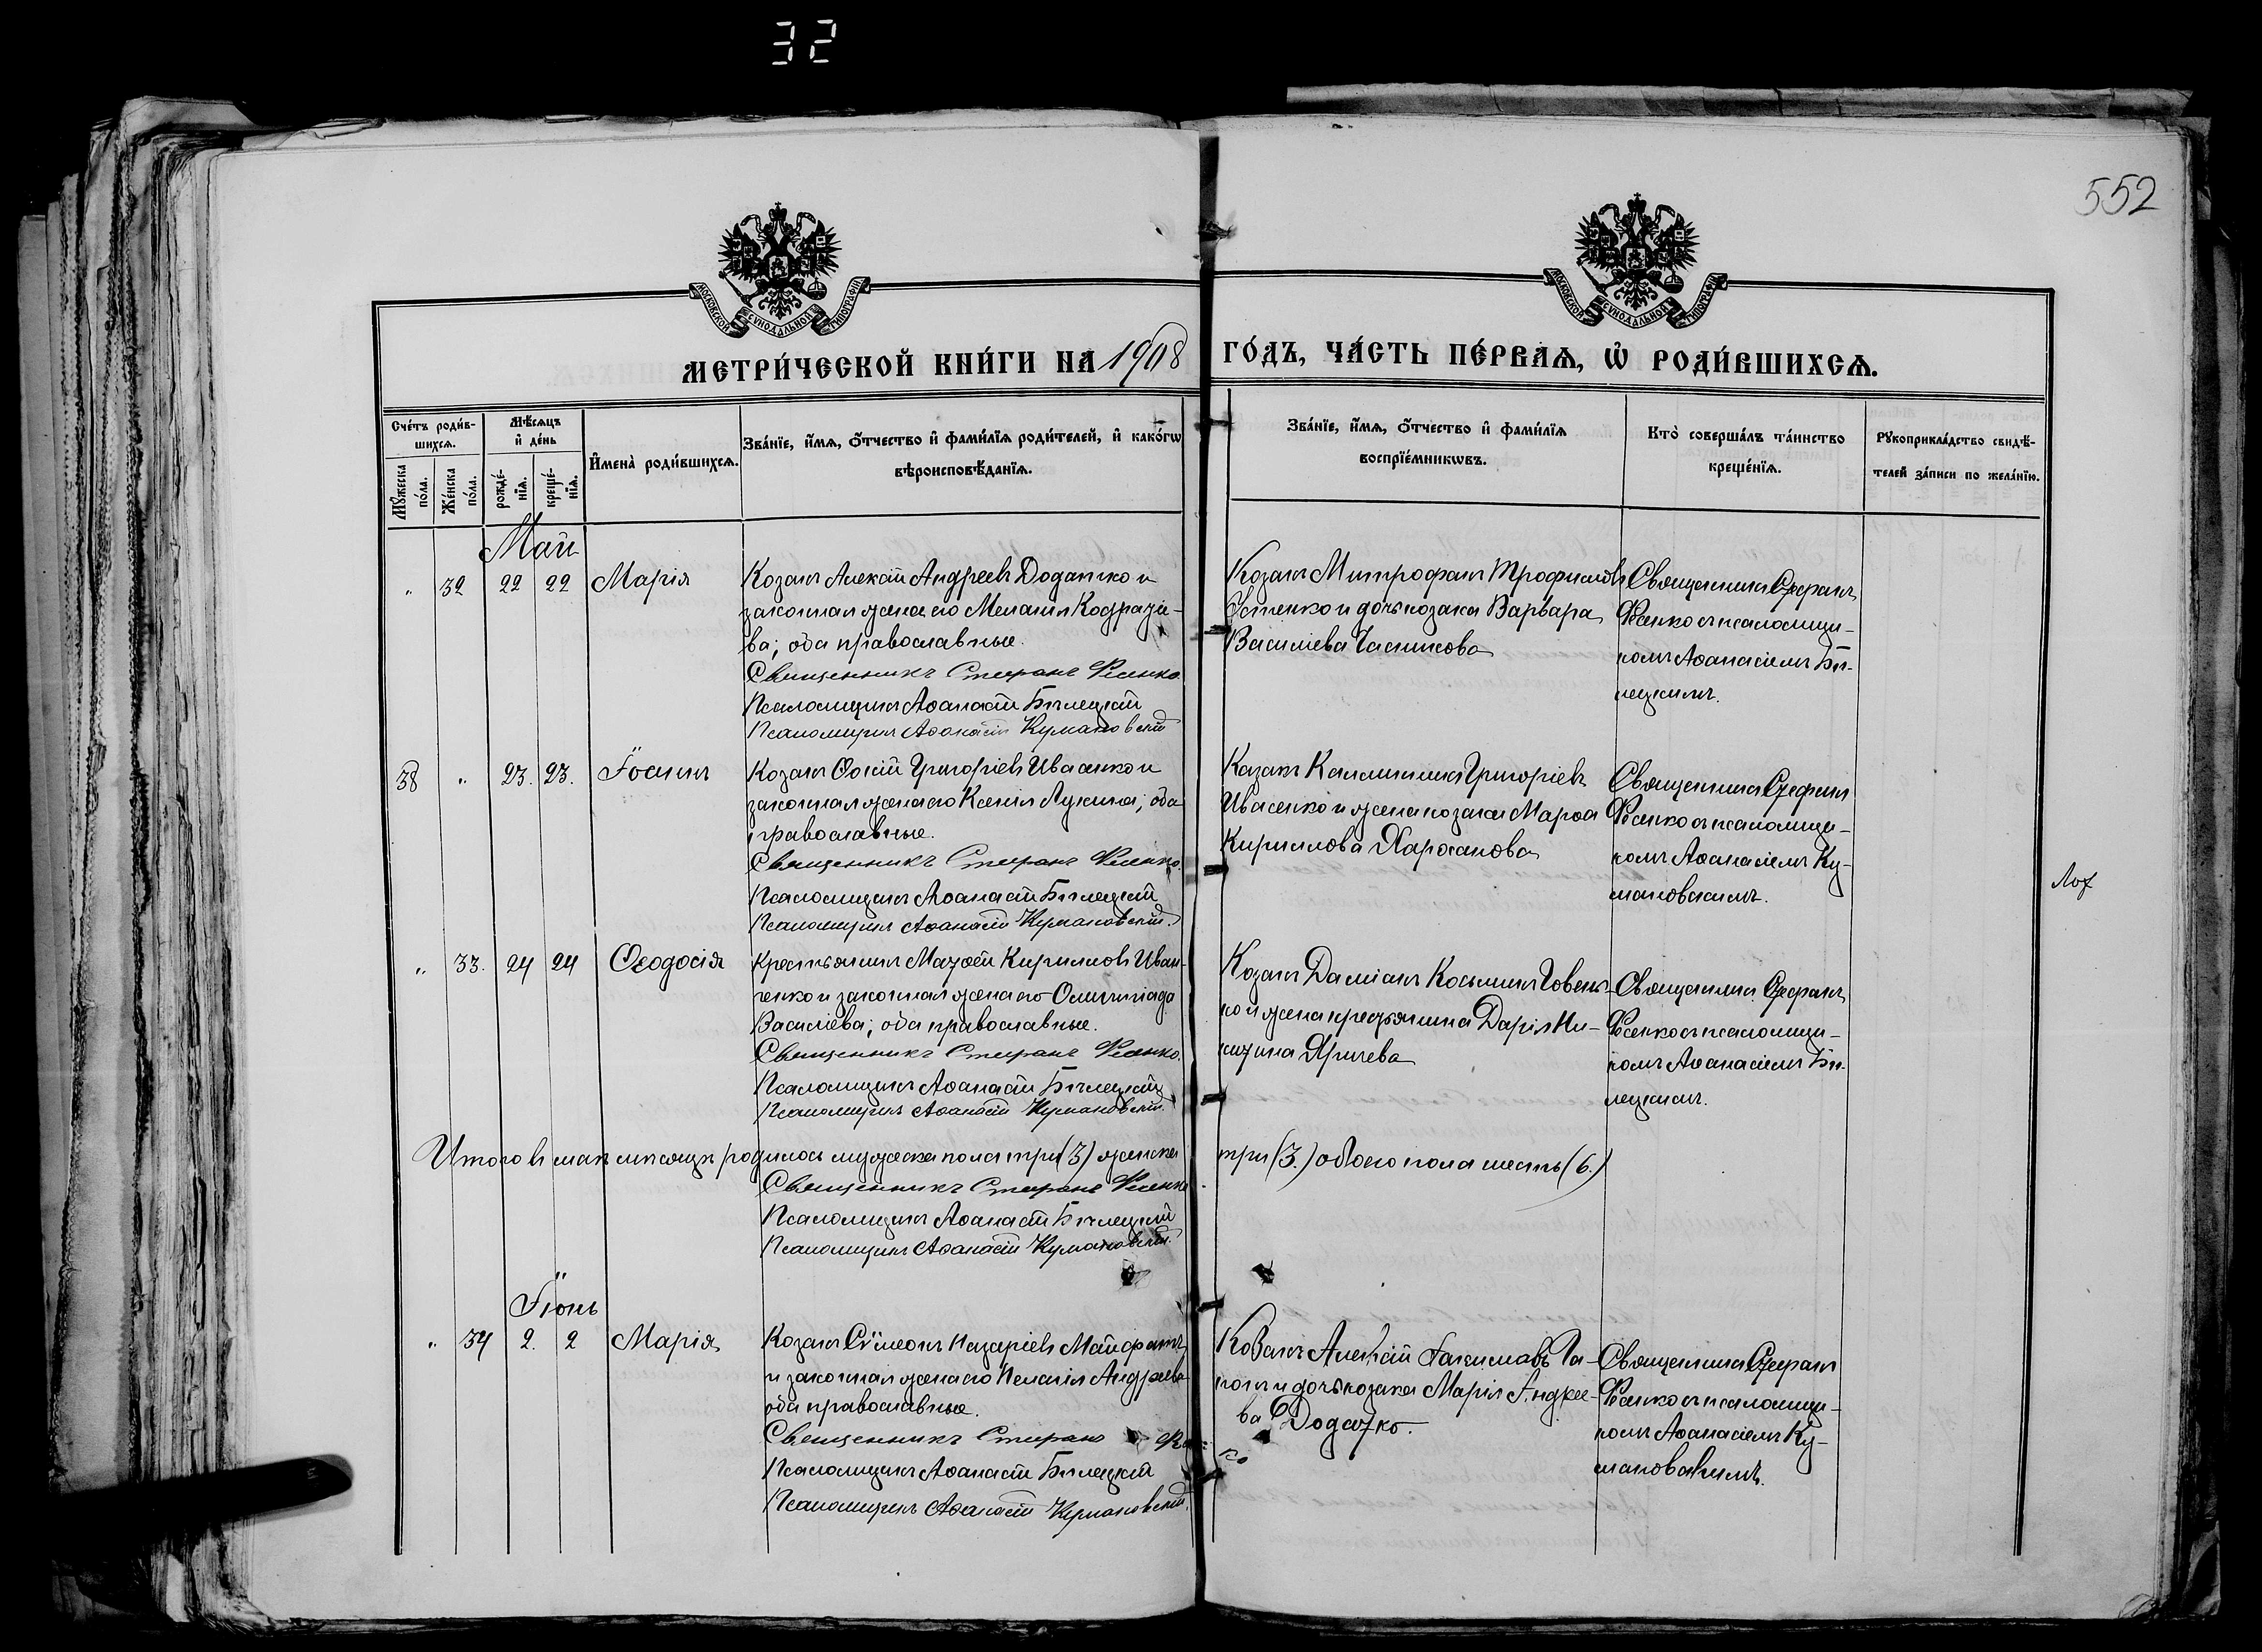 32
552
МОСКОВСКОЙ СѴНОДАЛЬНОЙ ТИПОГРАФІИ
МОСКОВСКОЙ СѴНОДАЛЬНОЙ ТИПОГРАФІИ
МЕТРИ́ЧЕСКОЙ КНИ́ГИ НА 1908 ГО́ДЪ, ЧА́СТЬ ПЕ́РВАѦ, Ѡ҆ РОДИ́ВШИХСѦ.
Сче́тъ роди́в-
шихсѧ.
Мꙋ́жеска
по́ла.
Же́нска
по́ла.
Мѣ́сѧцъ
и҆ де́нь
рожде́-
нїѧ.
креще́-
нїѧ.
И҆мена̀ роди́вшихсѧ.
Зва́нїе, и҆́мѧ, ѻ҆́тчество и҆ фами́лїѧ роди́телей, и҆ како́гѡ
вѣроисповѣ́данїѧ.
Зва́нїе, и҆́мѧ, ѻ҆́тчество и҆ фами́лїѧ
воспрїе́мникѡвъ.
Кто̀ соверша́лъ та́инство
креще́нїѧ.
Рꙋкоприкла́дство свидѣ́-
телей за́писи по жела́нїю.
Май
" 32 22 22 Марія
Козакъ Алексій Андреевъ Додатко и
законная жена его Меланія Кодратіе-
ва; оба православные.
Священникъ Стефанъ Фесенко.
Псаломщикъ Аѳанасій Бѣлецкій
Псаломщикъ Аѳанасій Кумановскій
Козакъ Митрофанъ Трофимовъ
Устенко и дочь козака Варвара
Василіева
Священникъ Стефанъ
Фесенко съ псаломщи-
комъ Аѳанасіемъ Бѣ-
лецкимъ.
38 " 23. 23. Іоаннъ
Козакъ Григоріевъ Ивасенко и
законная жена его Ксенія Лукина; оба
православные.
Священникъ Стефанъ Фесенко.
Псаломщикъ Аѳанасій Бѣлецкій
Псаломщикъ Аѳанасій Кумановскій.
Казакъ Каллиникъ Григоріевъ
Ивасенко и жена козака Марѳа
Кириллова
Священникъ Стефанъ
Фесенко съ псаломщи-
комъ Аѳанасіемъ Ку-
мановскимъ.
" 33. 24 24 Ѳеодосія
Крестьянинъ Матѳей Кирилловъ Иван-
ченко и законная жена его Олимпіада
Василіева; оба православные.
Священникъ Стефанъ Фесенко.
Псаломщикъ Аѳанасій Бѣлецкій
Псаломщикъ Аѳанасій Кумановскій.
Козакъ Даміанъ Косьминъ Говень-
ко и жена крестьянина Дарія Ни-
китина
Священникъ Стефанъ
Фесенко съ псаломщи-
комъ Аѳанасіемъ Бѣ-
лецкимъ.
Итого въ маѣ мѣсяцѣ родилось мужеска пола три (3) женска три (3.) обоего пола шесть (6.)
Священникъ Стефанъ Фесенко
Псаломщикъ Аѳанасій Бѣлецкій
Псаломщикъ Аѳанасій Кумановскій.
Іюнь
" 34 2. 2 Марія
Козакъ Сѵмеонъ Назаріевъ Майфатъ
и законная жена его Пелагія Андреева
оба православные.
Священникъ Стефанъ Фесенко
Псаломщикъ Аѳанасій Бѣлецкій
Псаломщикъ Аѳанасій Кумановскій.
Козакъ Алексій Га-
понъ и дочь козака Марія Андрее-
ва Додатко.
Священникъ Стефанъ
Фесенко съ псаломщи-
комъ Аѳанасіемъ Ку-
мановскимъ.